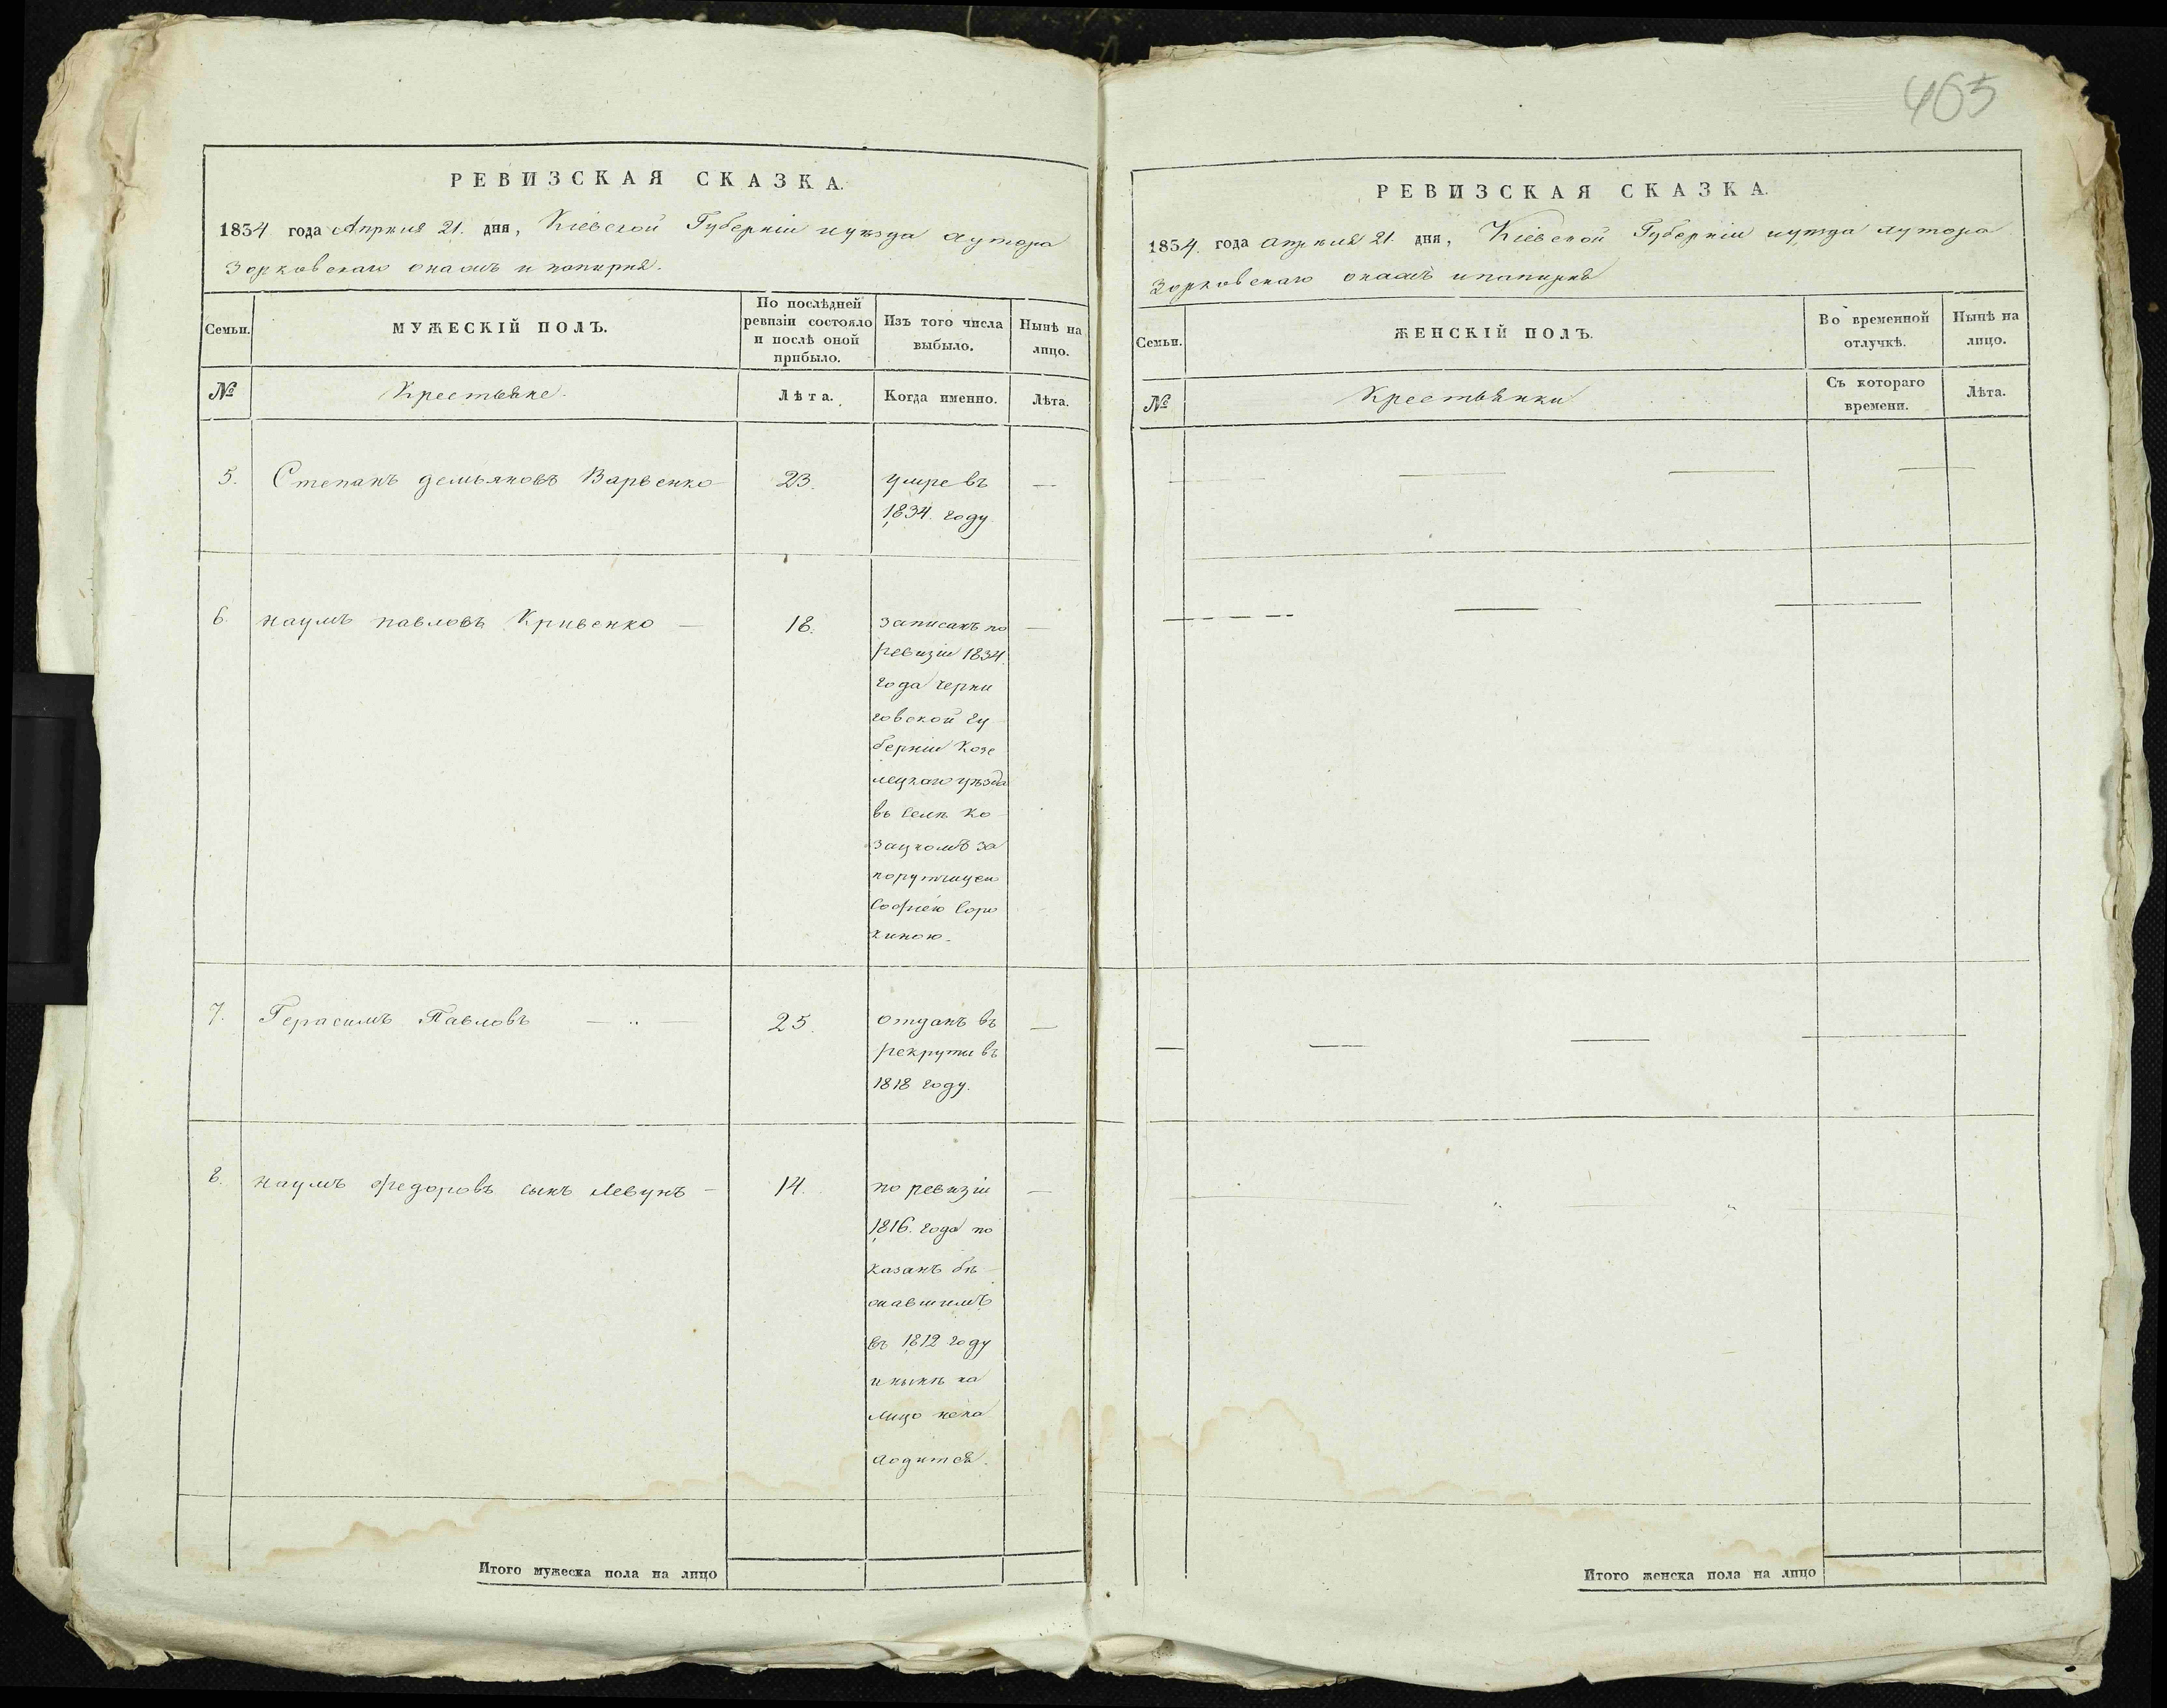 465
РЕВИЗСКАЯ СКАЗКА.
1834 года Апреля 21. дня, Кіевской Губерніи и уѣзда хутора
Зорковскаго онажъ и папирня.
Семьи.
МУЖЕСКІЙ ПОЛЪ.
По послѣдней ревизіи состояло и послѣ оной прибыло.
Изъ того числа выбыло.
Нынѣ на лицо.
№
Крестьяне.
Лѣта.
Когда именно.
Лѣта.
5. Степанъ демьяновъ Варвенко 23. умре въ —
1834. году
6. наумъ павловъ Кривенко — 18. записанъ по —
ревизіи 1834.
года черни
говской гу
берніи Козе
лецкаго уѣзда
въ селѣ Ко
зацкомъ за
порутчицею
Софіею Соро
киною.
7. Герасимъ Павловъ — „ — 25. отданъ въ —
рекруты въ
1818 году.
8. наумъ федоровъ сынъ Левунъ — 14. по ревизіи —
1816. года по
казанъ бѣ
жавшимъ
въ 1812 году
и нынѣ на
лицо нена
ходится.
Итого мужеска пола на лицо
РЕВИЗСКАЯ СКАЗКА.
1834. года апреля 21. дня, Кіевской Губерніи и уѣзда хутора
Зорковскаго онажъ и папирня
Семьи.
ЖЕНСКІЙ ПОЛЪ.
Во временной отлучкѣ.
Нынѣ на лицо.
№
Крестьянки
Съ котораго времени.
Лѣта.
Итого женска пола на лицо